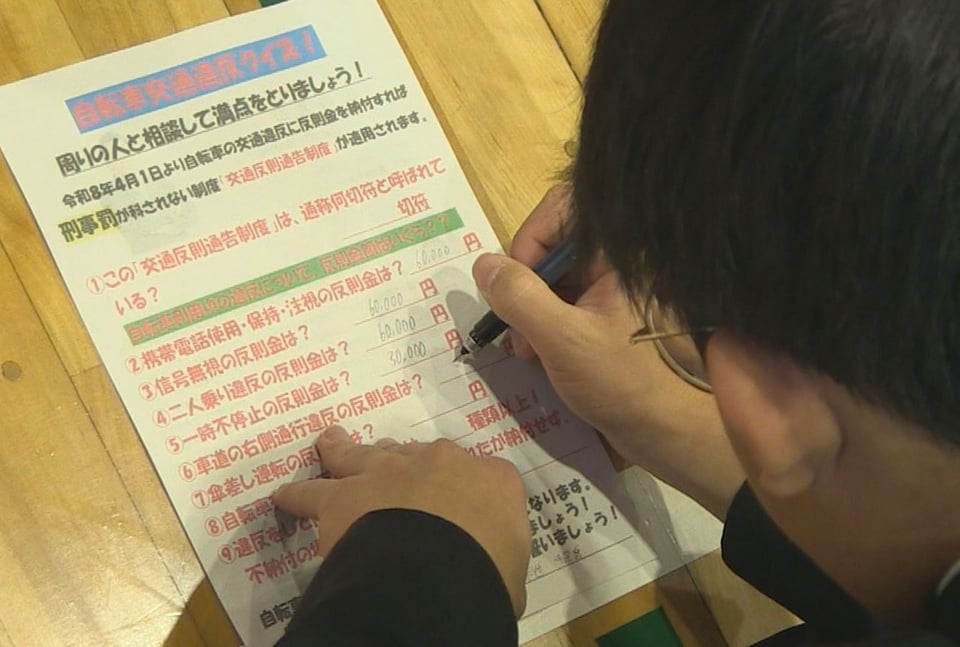 自転車交通違反クイズ！
周りの人と相談して満点をとりましょう！
令和8年4月1日より自転車の交通違反に反則金を納付すれば
刑事罰が科されない制度「交通反則通告制度」が適用されます。
①この「交通反則通告制度」は、通称何切符と呼ばれて
いる？ 切符
自転車利用中の違反について、反則金額はいくら？？
②携帯電話使用・保持・注視の反則金は？ 60,000 円
③信号無視の反則金は？ 60,000 円
④二人乗り違反の反則金は？ 60,000 円
⑤一時不停止の反則金は？ 30,000 円
⑥車道の右側通行違反の反則金は？
⑦傘差し運転の反 は？ 円
⑧自転車 種類以上！
⑨違反を れたが納付せず、
不納付の
なります。
ましょう！
いましょう！
自転